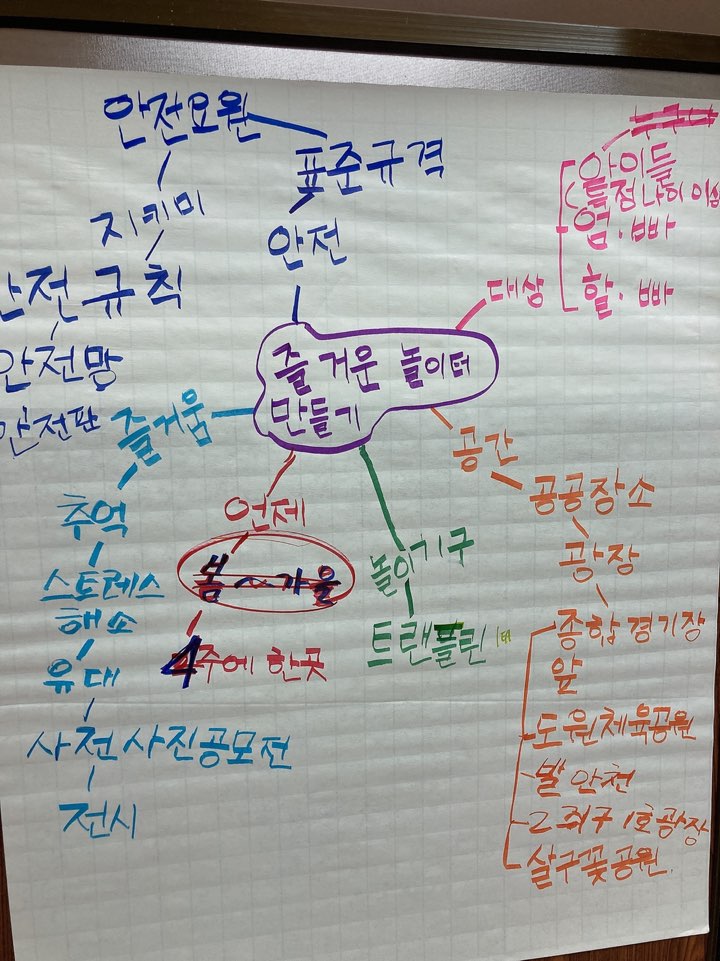 안전요원
표준규격
지키미
안전
안전규칙
안전망
안전판
누구나
아이들
엄.빠
할.빠
대상
즐거운 놀이터
만들기
즐거움
추억
스트레스
해소
유대
사전 사진공모전
전시
언제
봄~가을
4주에 한곳
놀이기구
트랜플린
공간
공공장소
광장
종합경기장
앞
도원체육공원
발안천
2지구 1호광장
살구꽃공원.